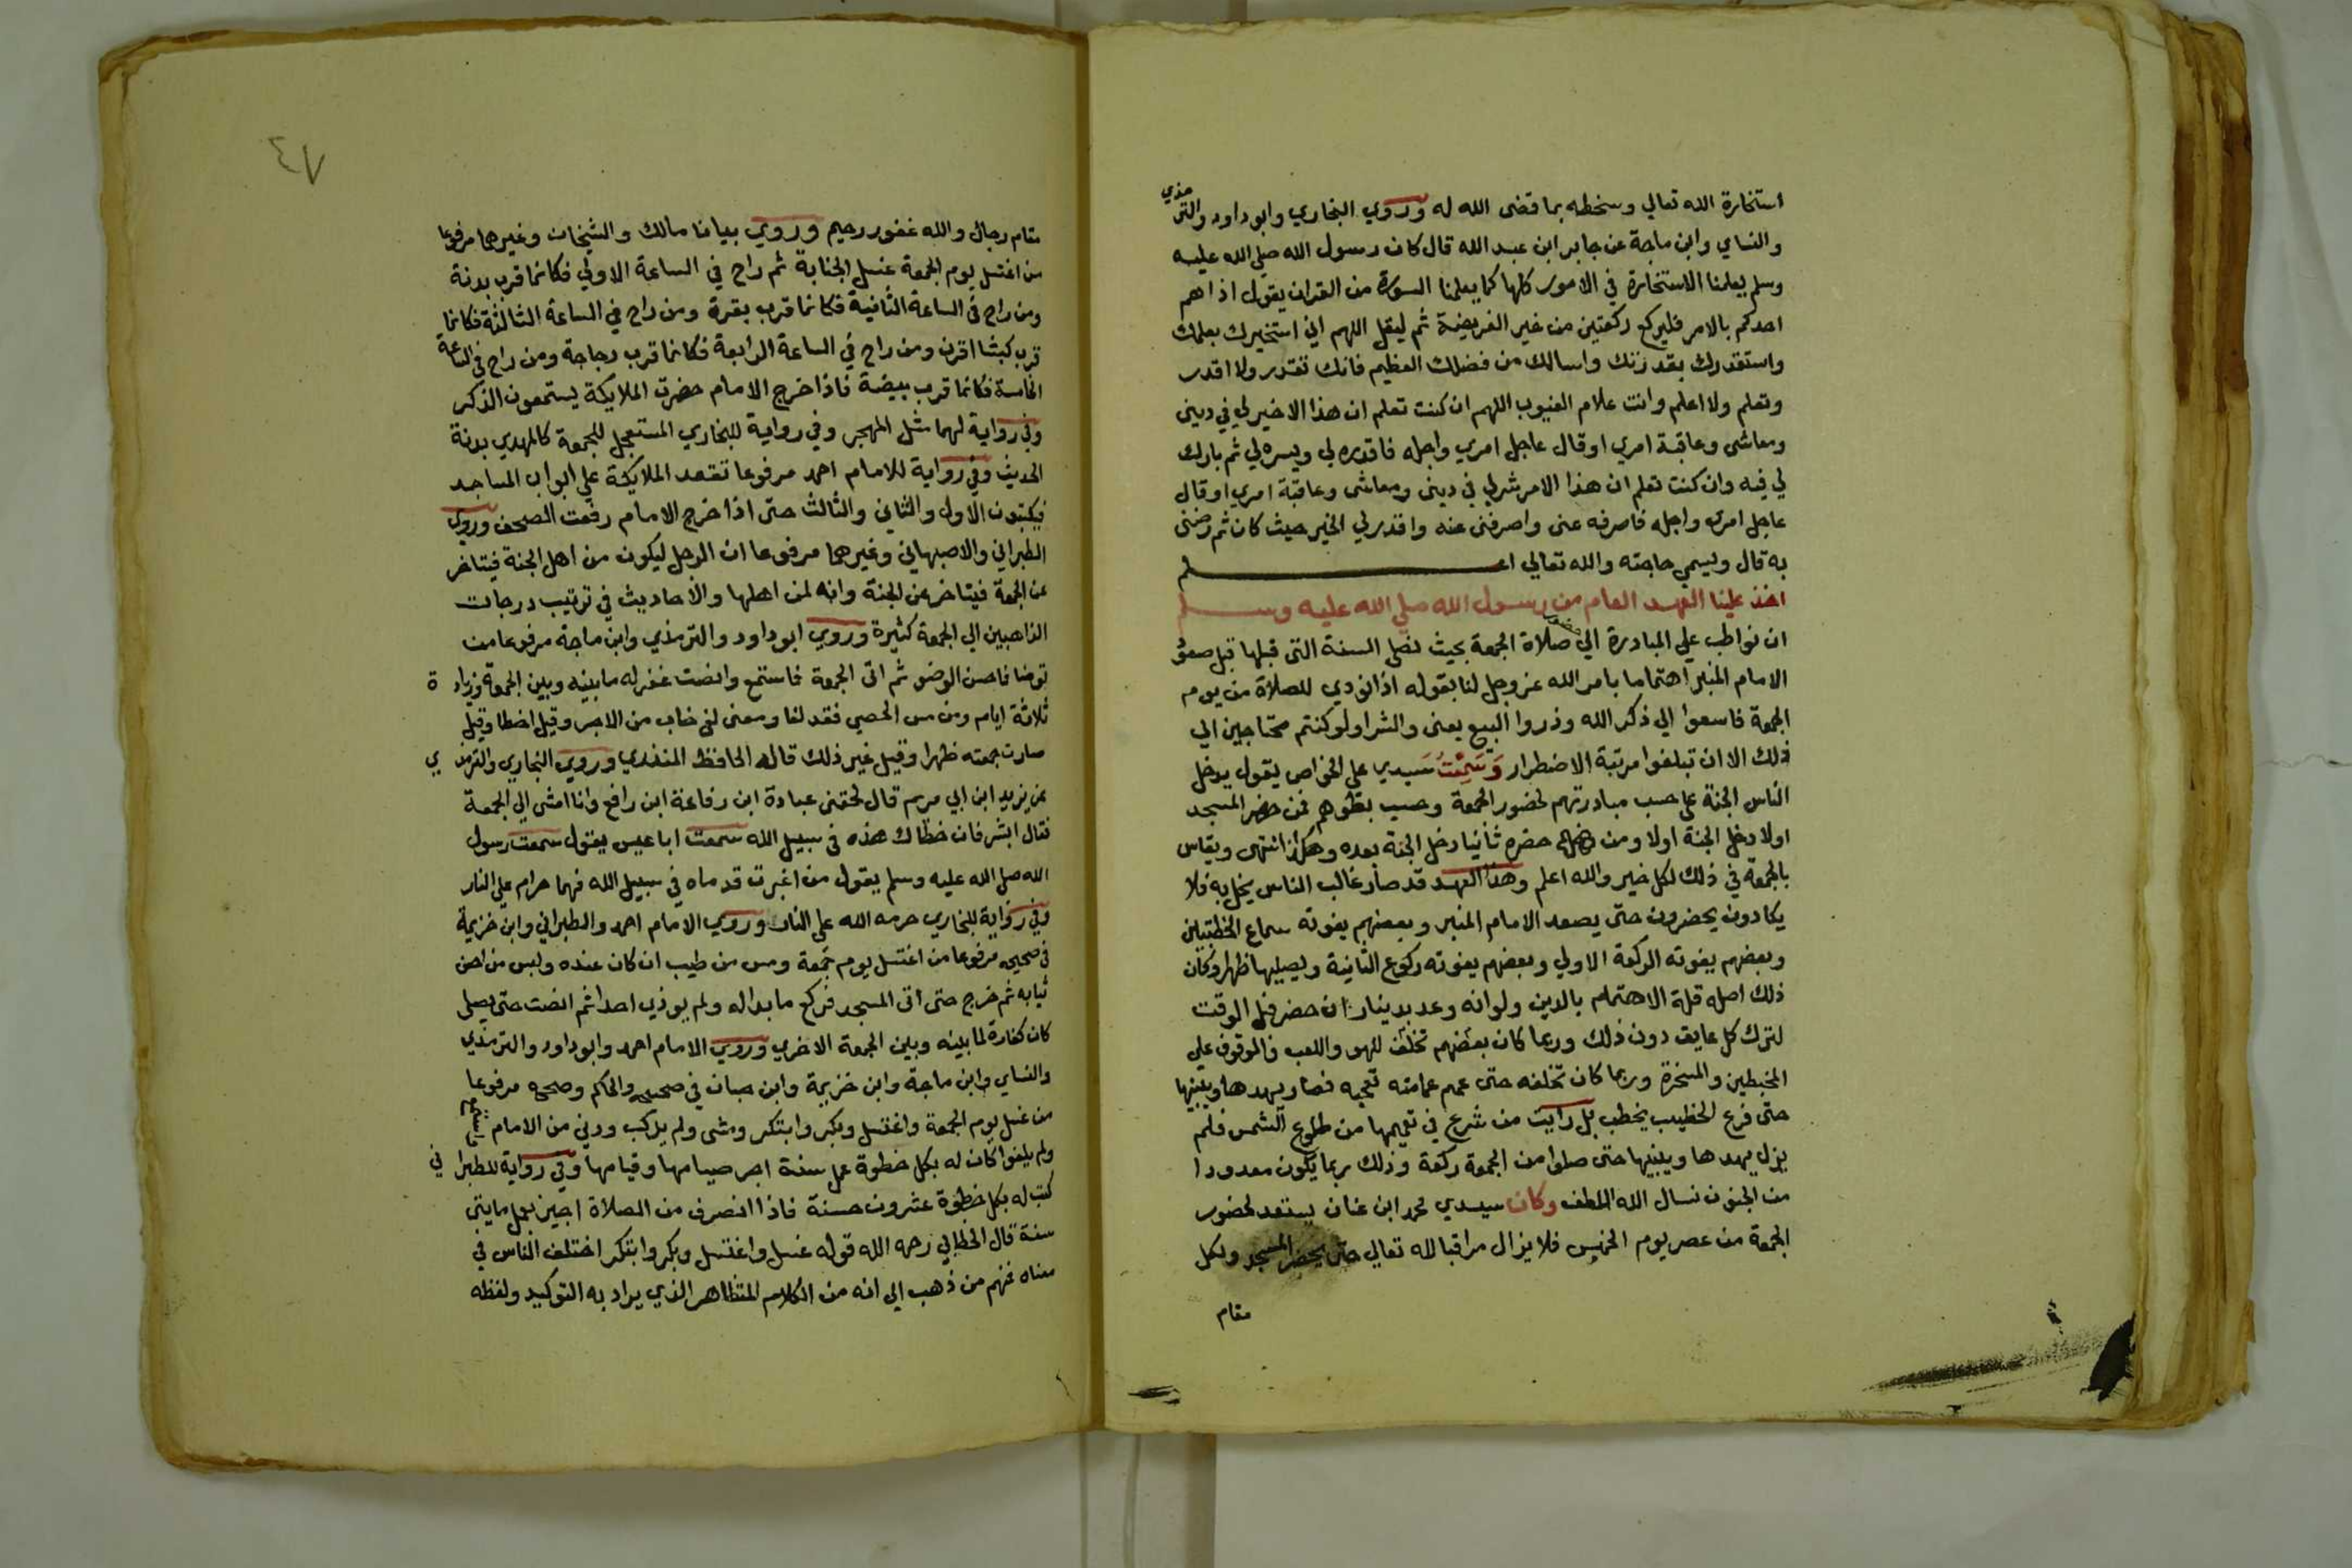 استخارة الله تعالي وسخطه بما قضى الله له وروي البخاري وابو داود والترمذي
والنساي وابن ماجة عن جابر ابن عبد الله قال كان رسول الله صلي الله عليه
وسلم يعلمنا الاستخارة في الامور كلها كما يعلمنا السورة من القران يقول اذا هم
احدكم بالامر فليركع ركعتين من غير الفريضة ثم ليقل اللهم اني استخيرك بعلمك
واستقدرك بقدرتك واسالك من فضلك العظيم فانك تقدر ولا اقدر
وتعلم ولا اعلم وانت علام الغيوب اللهم ان كنت تعلم ان هذا الا خير لي في ديني
ومعاشى وعاقبة امري او قال عاجل امري واجله فاقدره لي ويسره لي ثم بارك
لي فيه وان كنت تعلم ان هذا الامر شر لي في دينى ومعاشى وعاقبة امري او قال
عاجل امري واجله فاصرفه عنى واصرفنى عنه واقدر لي الخير حيث كان ثم رضنى
به قال ويسمي حاجته والله تعالي اعلم
اخذ علينا العهد العام من رسول الله صلي الله عليه وسلم
ان نواظب علي المبادرة الي صلاة الجمعة بحيث نصلى السنة التى قبلها قبل صعود
الامام المنبر اهتماما بامر الله عز وجل لنا بقوله اذا نودي للصلاة من يوم
الجمعة فاسعوا الي ذكر الله وذروا البيع يعنى والشرا ولو كنتم محتاجين الي
ذلك الا ان تبلغوا مرتبة الاضطرار وَسَمِعْتُ سيدي علي الخواص يقول يدخل
الناس الجنة على حسب مبادرتهم لحضور الجمعة وحسب بطوهم فمن حضر المسجد
اولا دخل الجنة اولا ومن حضره ثانيا دخل الجنة بعده وهكذا انتهى ويقاس
بالجمعة في ذلك لكل خير والله اعلم وهذا العهد قد صار غالب الناس يخل به فلا
يكادون يحضرون حتى يصعد الامام المنبر وبعضهم يفوته سماع الخطبتين
وبعضهم يفوته الركعة الاولي وبعضهم يفوته ركوع الثانية ويصليها ظهرا وكان
ذلك اصله قلة الاهتمام بالدين ولو انه وعد بدينار ان حضر قبل الوقت
لترك كل عايق دون ذلك وربما كان بعضهم تخلف للهو واللعب والوقوف على
المخبطين والمسخرة وربما كان تخلفه حتى عمم عمامته تعجبه فصار يهدها ويبنيها
حتى فرغ الخطيب يخطب بل رايت من شرع في تعميمها من طلوع الشمس فلم
يزل يهدها ويبنيها حتى صلوا من الجمعة ركعة وذلك ربما يكون معدودا
من الجنون نسال الله اللطف وكان سيدي محمد ابن عنان يستعد لحضور
الجمعة من عصر يوم الخميس فلا يزال مراقبا لله تعالي حتى يحضر المسجد ولكل
مقام
٤٧
مقام رجال والله غفور رحيم وروي بيانا مالك والشيخان وغيرهما مرفوعا
من اغتسل يوم الجمعة غسل الجنابة ثم راح في الساعة الاولي فكانما قرب بدنة
ومن راح فى الساعة الثانية فكانما قرب بقرة ومن راح في الساعة الثالثة فكانما
قرب كبشا اقرن ومن راح في الساعة الرابعة فكانما قرب دجاجة ومن راح في الساعة
الخامسة فكانما قرب بيضة فاذا خرج الامام حضرت الملايكة يستمعون الذكر
وفي رواية لهما مثل المهجر وفي رواية للبخاري المستعجل للجمعة كالمهدي بدنة
الحديث وفي رواية للامام احمد مرفوعا تقعد الملايكة على ابواب المساجد
فيكتبون الاول والثاني والثالث حتى اذا خرج الامام رفعت الصحف وروي
الطبراني والاصبهاني وغيرهما مرفوعا ان الرجل ليكون من اهل الجنة فيتاخر
عن الجمعة فيتاخر عن الجنة وانه لمن اهلها والاحاديث في ترتيب درجات
الذاهبين الي الجمعة كثيرة وروي ابو داود والترمذي وابن ماجة مرفوعا من
توضا فاحسن الوضو ثم اتى الجمعة فاستمع وانصت غفر له ما بينه وبين الجمعة وزيادة
ثلاثة ايام ومن مس الحصي فقد لغا ومعنى لغى خاب من الاجر وقيل اخطا وقيل
صارت جمعته ظهرا وقيل غير ذلك قاله الحافظ المنذري وروي البخاري والترمذي
عن يزيد ابن ابي مريم قال لحقنى عبادة ابن رفاعة ابن رافع وانا امشي الي الجمعة
فقال ابشر فان خطاك هذه في سبيل الله سمعت ابا عبس يقول سمعت رسول
الله صلي الله عليه وسلم يقول من اغبرت قدماه في سبيل الله فهما حرام علي النار
وفي رواية للبخاري حرمه الله على النار وروي الامام احمد والطبراني وابن خزيمة
في صحيحه مرفوعا من اغتسل يوم جمعة ومس من طيب ان كان عنده ولبس من احسن
ثيابه ثم خرج حتى اتى المسجد فركع ما بدا له ولم يوذي احدا ثم انصت حتى يصلى
كان كفارة لما بينه وبين الجمعة الاخري وروي الامام احمد وابو داود والترمذي
والنساي وابن ماجة وابن خزيمة وابن حبان في صحيحه والحاكم وصححه مرفوعا
من غسل يوم الجمعة واغتسل وبكر وابتكر ومشى ولم يركب ودني من الامام
ولم يلغوا كان له بكل خطوة عمل سنة اجر صيامها وقيامها وفي رواية للطبراني
كتب له بكل خطوة عشرون حسنة فاذا انصرف من الصلاة اجيز بعمل مايتي
سنة قال الخطابي رحمه الله قوله غسل واغتسل وبكر وابتكر اختلف الناس في
معناه فمنهم من ذهب الي انه من الكلام المتظاهر الذي يراد به التوكيد ولفظه